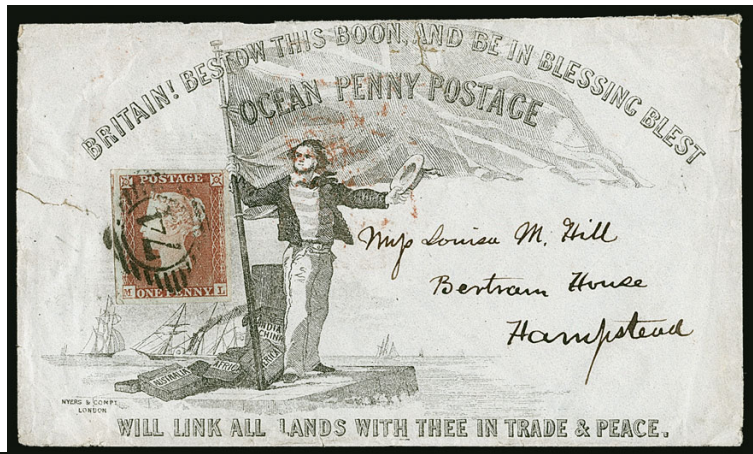 BRITAIN! BESTOW THIS BOON, AND BE IN BLESSING BLEST
OCEAN PENNY POSTAGE
POSTAGE
74
M ONE PENNY L
Miss Louisa M. Hill
Bertram House
Hampstead
INDIA
CHINA
AFRICA
AUSTRALIA
MYERS & COMPY
LONDON
WILL LINK ALL LANDS WITH THEE IN TRADE & PEACE.